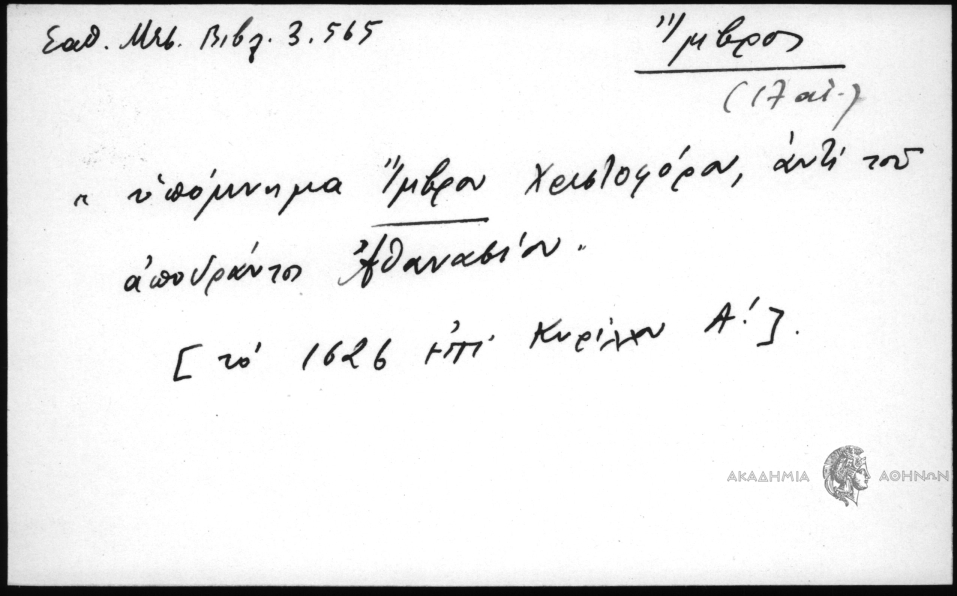 Σαθ. Μεσ. Βιβλ. 3.565
Ἴμβρος
(17 αἰ.)
« ὑπόμνημα Ἴμβρου Χριστοφόρου, ἀντὶ τοῦ
ἀποδράντος Ἀθανασίου.
[τὸ 1626 ἐπὶ Κυρίλλου Α!].
ΑΚΑΔΗΜΙΑ ΑΘΗΝΩΝ